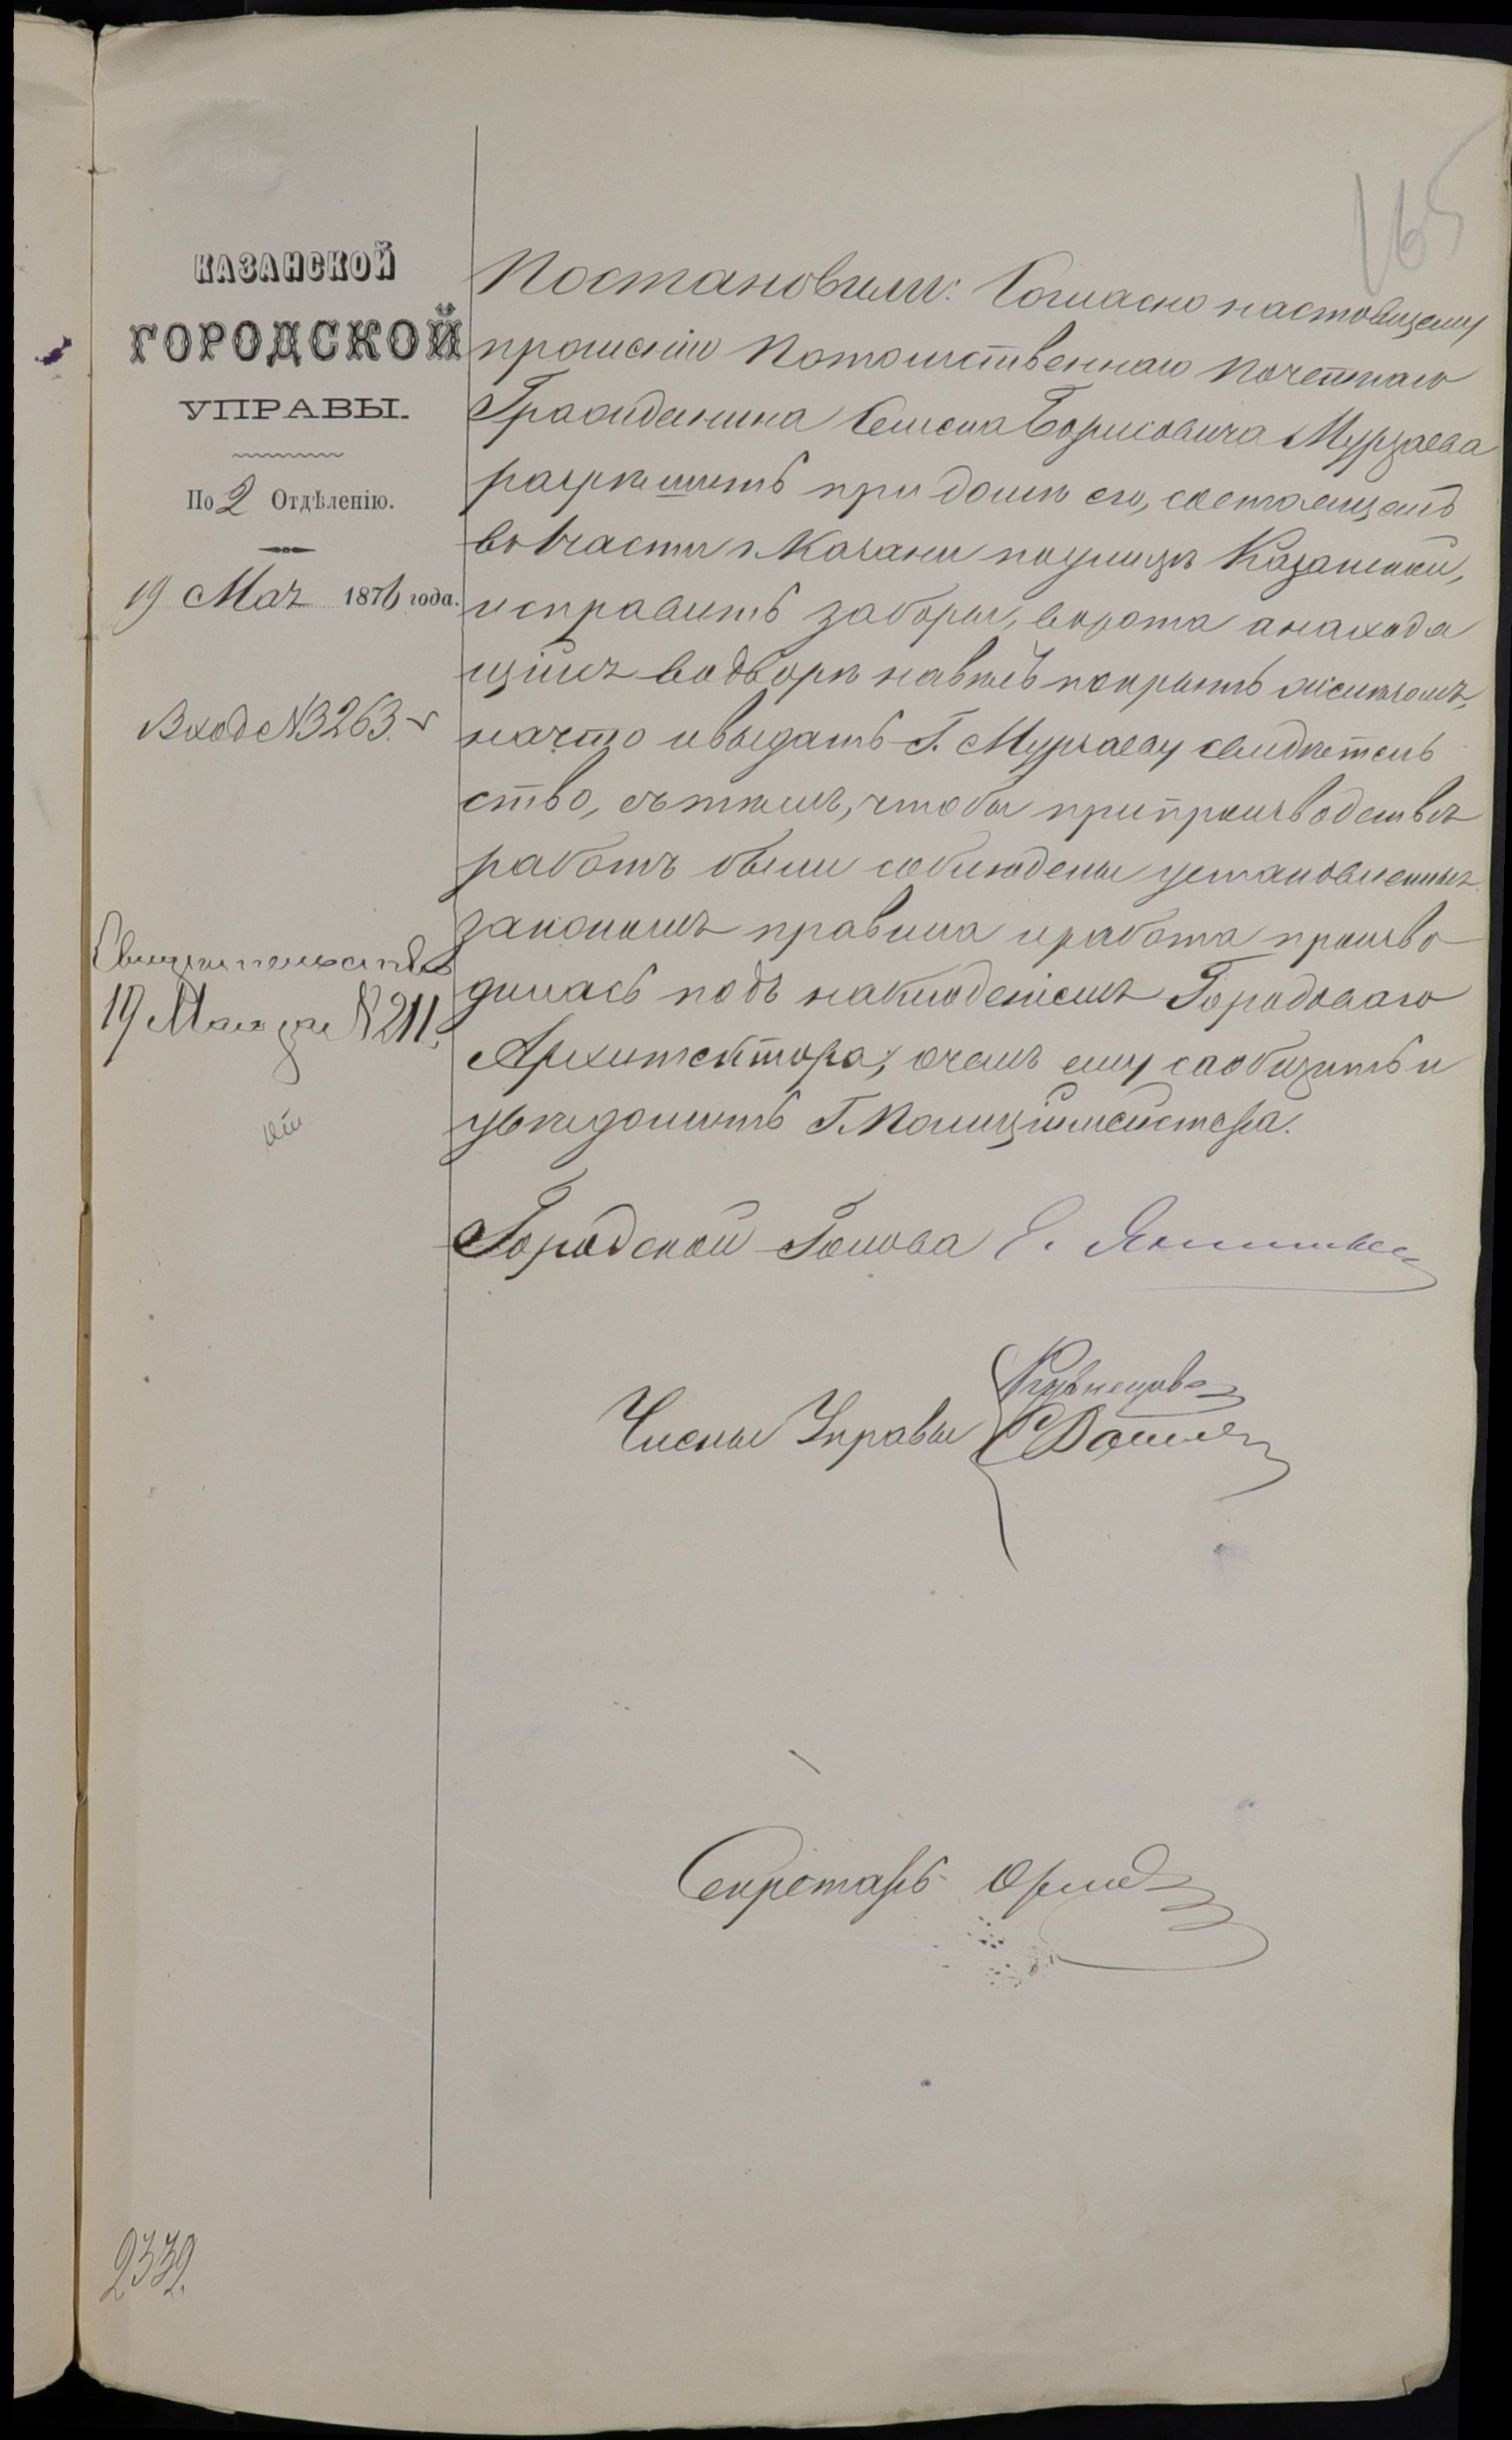 165
КАЗАНСКОЙ
ГОРОДСКОЙ
УПРАВЫ.
По 2 Отдѣленію.
19 Мая 1876 года.
Вход № 3263.
Свидѣтельство
19 Мая за № 211.
Постановили: Согласно настоящему
прошенію Потомственнаго Почетнаго
Гражданина Семена Борисовича Мурзаева
разрѣшить при домѣ его, состоящемъ
во 1 части г. Казани по улицѣ Казанской,
исправить заборы, ворота а находя
щійся во дворѣ навѣсъ покрыть желѣзомъ,
на что и выдать Г. Мурзаеву свидѣтель
ство, съ тѣмъ, чтобы при производствѣ
работъ были соблюдены установленныя
закономъ правила и работа произво
дилась подъ наблюденіемъ Городоваго
Архитектора, о чемъ ему сообщить и
увѣдомить Г. Полиціймейстера.
Городской Голова Е.
Члены Управы Кузнецовъ
Секретарь
2332.